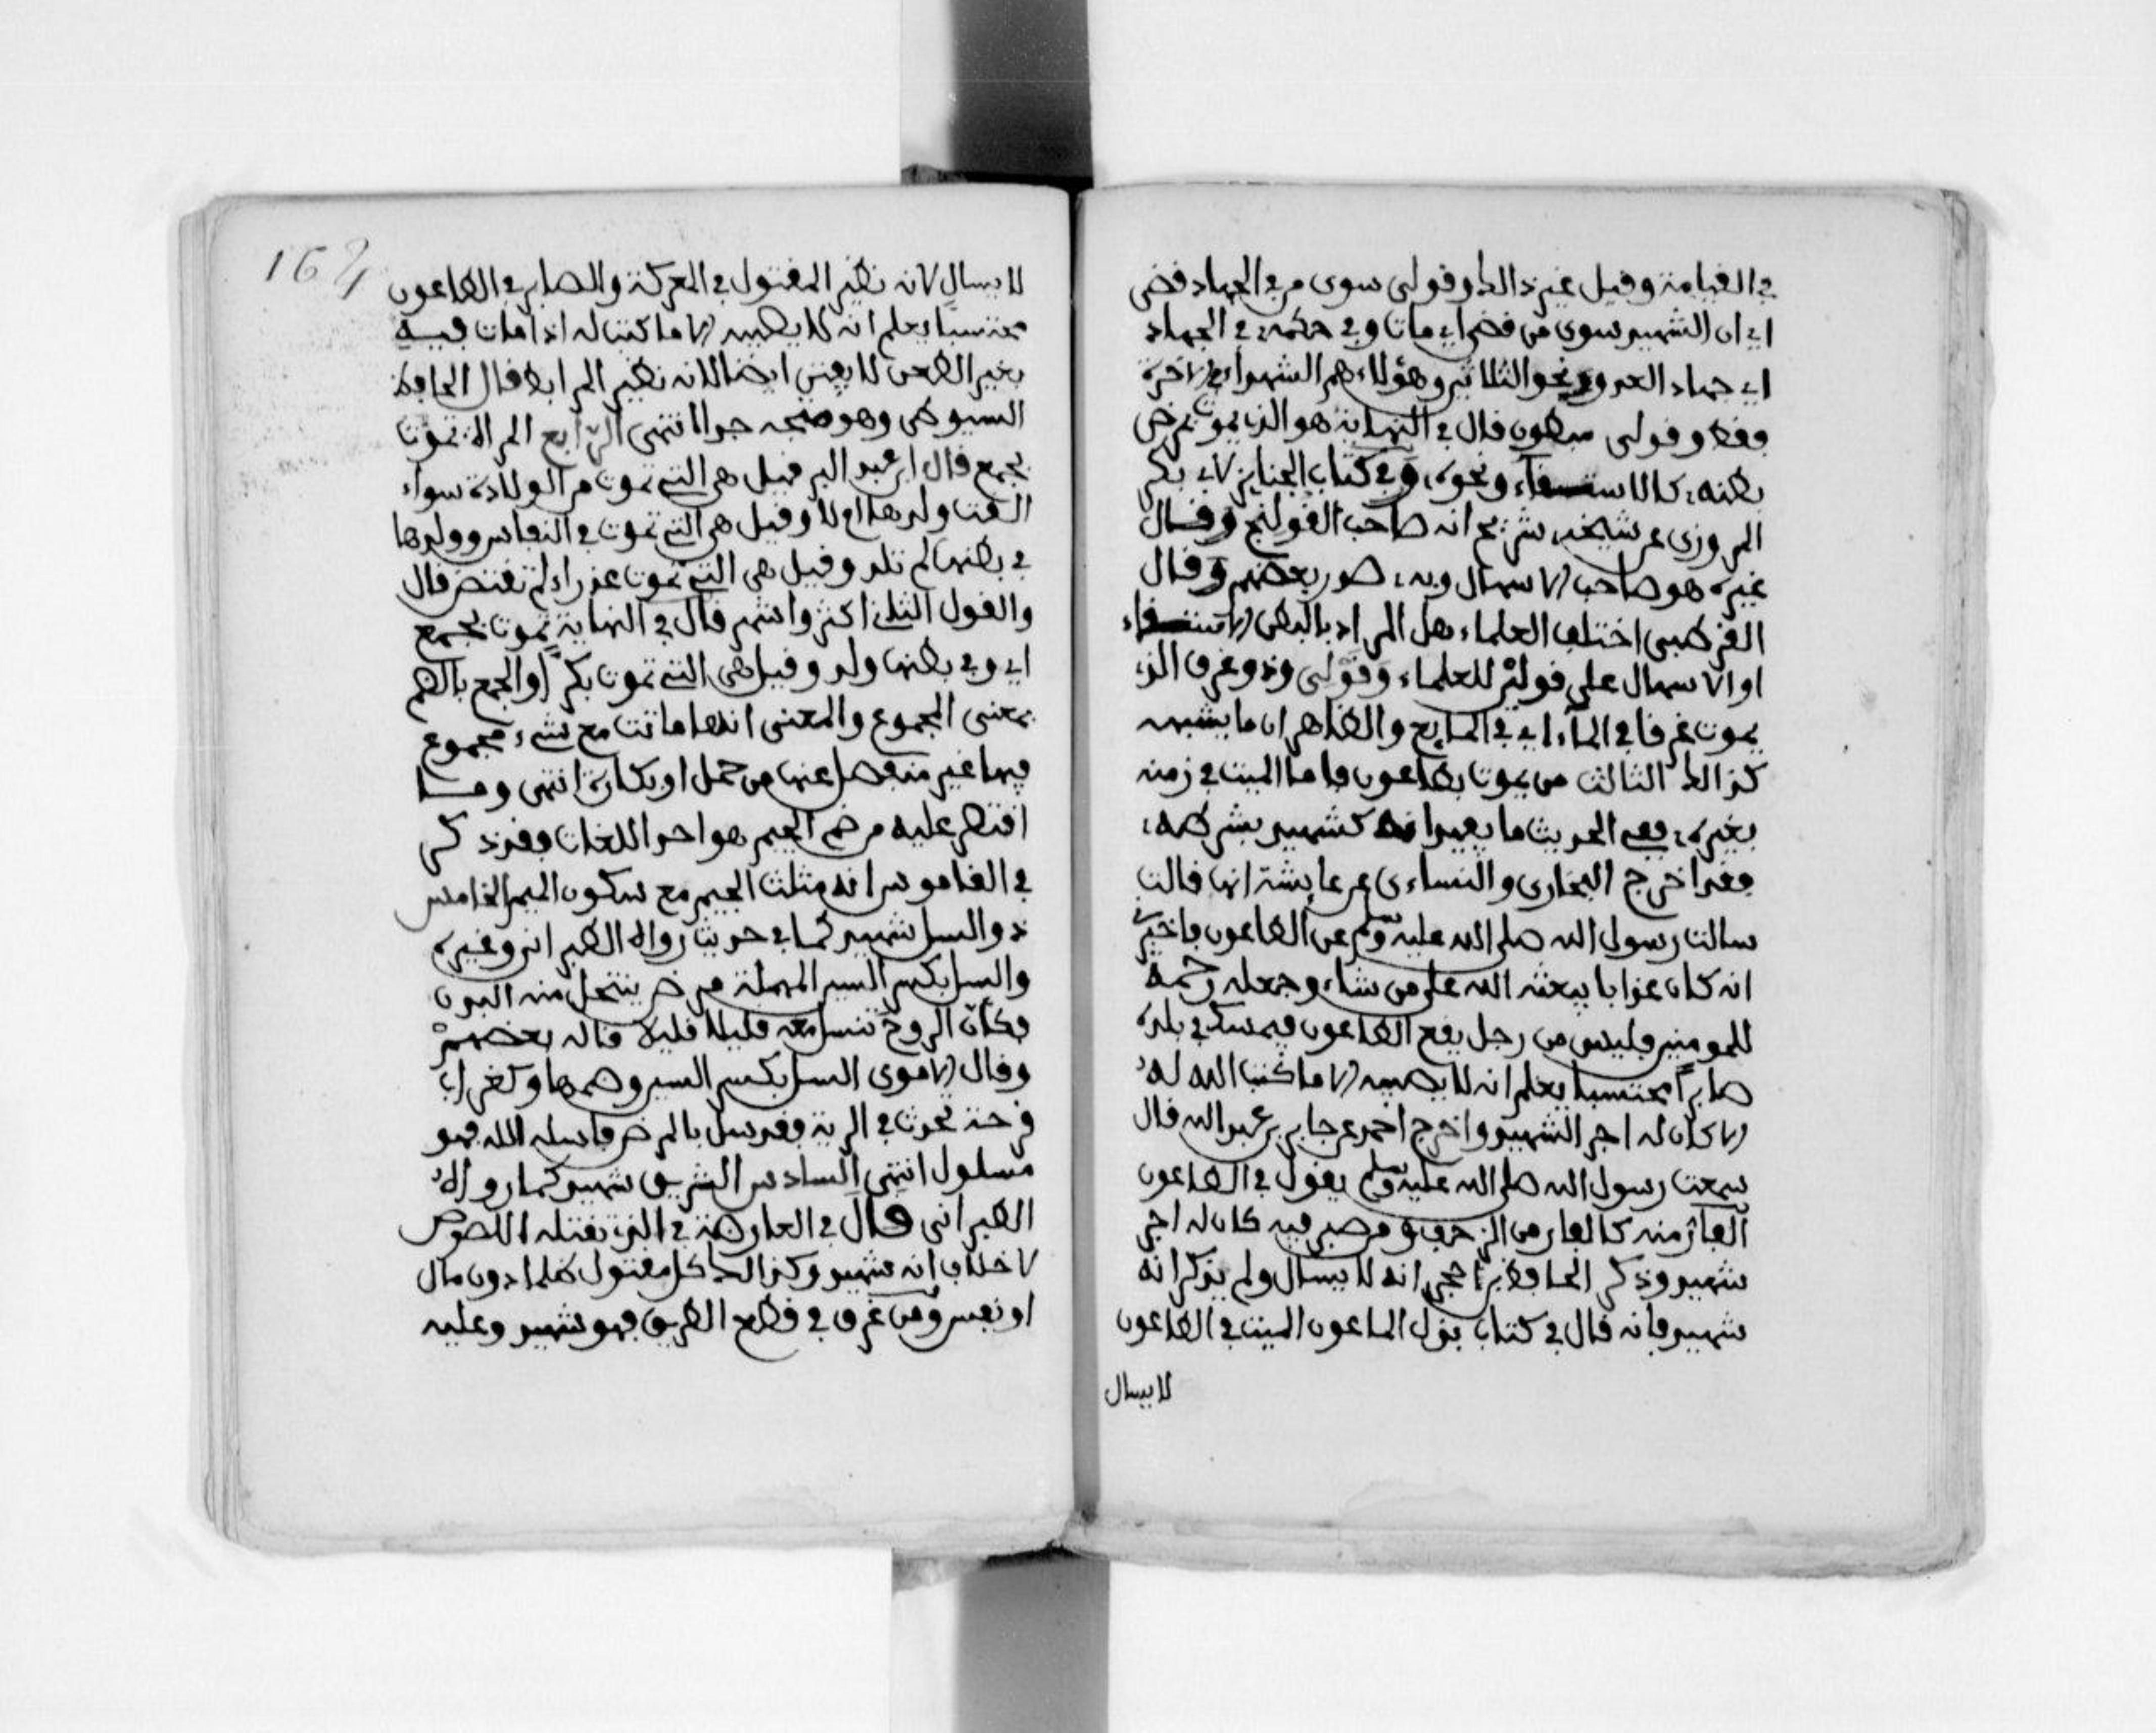 في القيامة وقيل غير ذالك وقولى سوى من في الجهاد قضى
اي ان الشهيد سوى من قضى اي مات وفى حكمه في الجهاد
اي جهاد العدو ونحو الثلاثين وهؤلاء هم الشهداء في الاخرة
فقط وقولى مبطون قال في النهاية هو الذي يموت بمرض
بطنه كالاستسقاء ونحوه وفي كتاب الجنايز لابي بكر
المروزى عن شيخه شريح انه صاحب القولنج وقال
غيره هو صاحب الاسهال وبه صدر بعضهم وقال
القرطبى اختلف العلماء هل المراد بالبطن الاستسقاء
او الاسهال على قولين للعلماء وقولى وذو غرق الذي
يموت غرقا في الماء اي في السايح والظاهر ان ما يشبهه
كذالك الثالث من يموت بطاعون واما الميت في زمنه
بغيره ففى الحديث ما يفيد انه كشهيد بشرطه
فقد اخرج البخارى والنساءى عن عايشة انها قالت
سالت رسول الله صلى الله عليه وسلم عن الطاعون فاخبرنى
انه كان عذابا يبعثه الله على من شاء وجعله رحمة
للمومنين فليس من رجل يقع الطاعون فيمسك في بلده
صابراً محتسبا يعلم انه لا يصيبه الا ما كتب الله له
الا كان له اجر الشهيد واخرج احمد عن جابر بن عبد الله قال
سمعت رسول الله صلى الله عليه وسلم يقول في الطاعون
الفار منه كالفار من الزحف ومن صبر فيه كان له اجر
شهيد وذكر الحافظ بن حجر انه لا يسال ولم يذكر انه
شهيد فانه قال في كتاب بذل الماعون الميت في الطاعون
لا يسال
162
لا يسال لانه نظير المقتول في المعركة والصابر في الطاعون
محتسبا يعلم انه لا يصيبه الا ما كتب له اذا مات فيه
بغير الطعن لا يفتن ايضا لانه نظير المرابط قال الحافظ
السيوطى وهو متجه جدا انتهى الرابع المراة تموت
بجمع قال ابن عبد البر قيل هي التي تموت من الولادة سواء
القت ولدها ام لا وقيل هي التي تموت في النفاس وولدها
في بطنها لم تلد وقيل هي التي تموت عذراء لم تفتض قال
والقول الثانى اكثر واشهر قال في النهاية تموت بجمع
اي وفي بطنها ولد وقيل هي التي تموت بكراً والجمع بالضم
بمعنى المجموع والمعنى انها ماتت مع شيء مجموع
فيها غير منفصل عنها من حمل او بكارة انتهى وما
اقتصر عليه من ضم الجيم هو احد اللغات فقد ذكر
في القاموس انه مثلث الجيم مع سكون الميم الخامس
ذو السل شهيد كما في حديث رواه الطبراني وغيره
والسل بكسر السين المهملة مرض ينتحل منه البدن
فكأن الروح تنسل معه قليلا قليلا قاله بعضهم
وقال الاموى السل بكسر السين وضمها وكغراب
قرحة تحدث في الرية وقد سل بالمرض واسله الله فهو
مسلول انتهى السادس الشريق شهيد كما رواه
الطبرانى قال في العارضة في الذي تقتله اللصوص
لا خلاف انه شهيد وكذالك كل مقتول ظلما دون مال
او نفس ومن غرق في قطع الطريق فهو شهيد وعليه